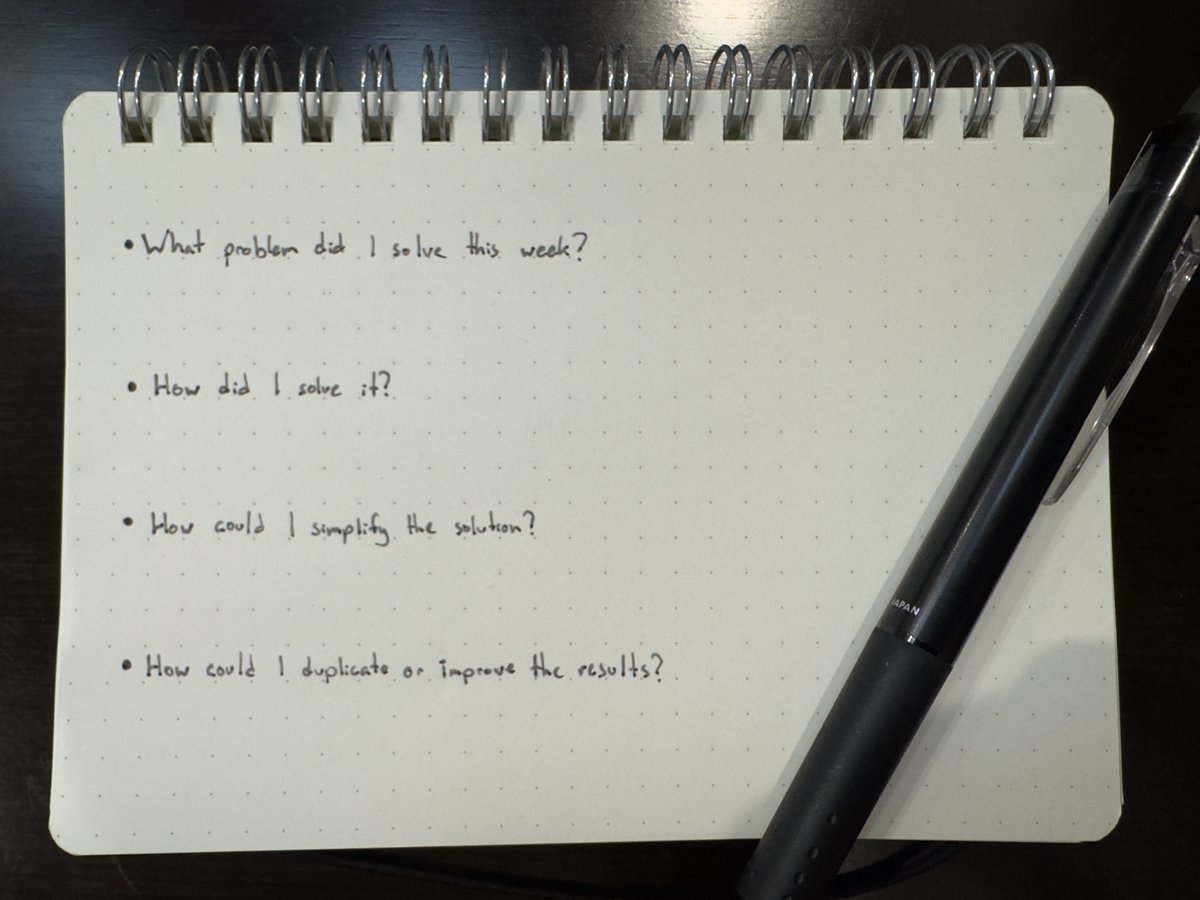 • What problem did I solve this week?
• How did I solve it?
• How could I simplify the solution?
• How could I duplicate or improve the results?
JAPAN